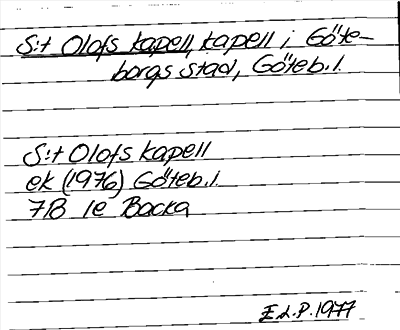 S:t Olofs kapell, kapell i Göte-
borgs stad, Göteb.l.
S:t Olofs kapell
ek (1976) Göteb.l.
7B 1e Backa
E.L.P. 1977